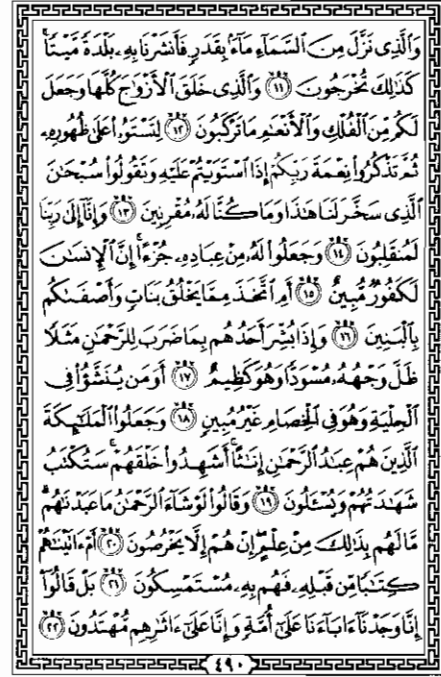 وَٱلَّذِى نَزَّلَ مِنَ ٱلسَّمَآءِ مَآءًۢ بِقَدَرٍ فَأَنشَرْنَا بِهِۦ بَلْدَةً مَّيْتًاۚ
كَذَٰلِكَ تُخْرَجُونَ ﴿١١﴾ وَٱلَّذِى خَلَقَ ٱلْأَزْوَٰجَ كُلَّهَا وَجَعَلَ
لَكُم مِّنَ ٱلْفُلْكِ وَٱلْأَنْعَٰمِ مَا تَرْكَبُونَ ﴿١٢﴾ لِتَسْتَوُۥا۟ عَلَىٰ ظُهُورِهِۦ
ثُمَّ تَذْكُرُوا۟ نِعْمَةَ رَبِّكُمْ إِذَا ٱسْتَوَيْتُمْ عَلَيْهِ وَتَقُولُوا۟ سُبْحَٰنَ
ٱلَّذِى سَخَّرَ لَنَا هَٰذَا وَمَا كُنَّا لَهُۥ مُقْرِنِينَ ﴿١٣﴾ وَإِنَّآ إِلَىٰ رَبِّنَا
لَمُنقَلِبُونَ ﴿١٤﴾ وَجَعَلُوا۟ لَهُۥ مِنْ عِبَادِهِۦ جُزْءًاۚ إِنَّ ٱلْإِنسَٰنَ
لَكَفُورٌ مُّبِينٌ ﴿١٥﴾ أَمِ ٱتَّخَذَ مِمَّا يَخْلُقُ بَنَاتٍ وَأَصْفَىٰكُم
بِٱلْبَنِينَ ﴿١٦﴾ وَإِذَا بُشِّرَ أَحَدُهُم بِمَا ضَرَبَ لِلرَّحْمَٰنِ مَثَلًا
ظَلَّ وَجْهُهُۥ مُسْوَدًّا وَهُوَ كَظِيمٌ ﴿١٧﴾ أَوَمَن يُنَشَّؤُا۟ فِى
ٱلْحِلْيَةِ وَهُوَ فِى ٱلْخِصَامِ غَيْرُ مُبِينٍ ﴿١٨﴾ وَجَعَلُوا۟ ٱلْمَلَٰٓئِكَةَ
ٱلَّذِينَ هُمْ عِبَٰدُ ٱلرَّحْمَٰنِ إِنَٰثًاۚ أَشَهِدُوا۟ خَلْقَهُمْۚ سَتُكْتَبُ
شَهَٰدَتُهُمْ وَيُسْـَٔلُونَ ﴿١٩﴾ وَقَالُوا۟ لَوْ شَآءَ ٱلرَّحْمَٰنُ مَا عَبَدْنَٰهُمۗ
مَّا لَهُم بِذَٰلِكَ مِنْ عِلْمٍۖ إِنْ هُمْ إِلَّا يَخْرُصُونَ ﴿٢٠﴾ أَمْ ءَاتَيْنَٰهُمْ
كِتَٰبًا مِّن قَبْلِهِۦ فَهُم بِهِۦ مُسْتَمْسِكُونَ ﴿٢١﴾ بَلْ قَالُوٓا۟
إِنَّا وَجَدْنَآ ءَابَآءَنَا عَلَىٰٓ أُمَّةٍ وَإِنَّا عَلَىٰٓ ءَاثَٰرِهِم مُّهْتَدُونَ ﴿٢٢﴾
٤٩٠